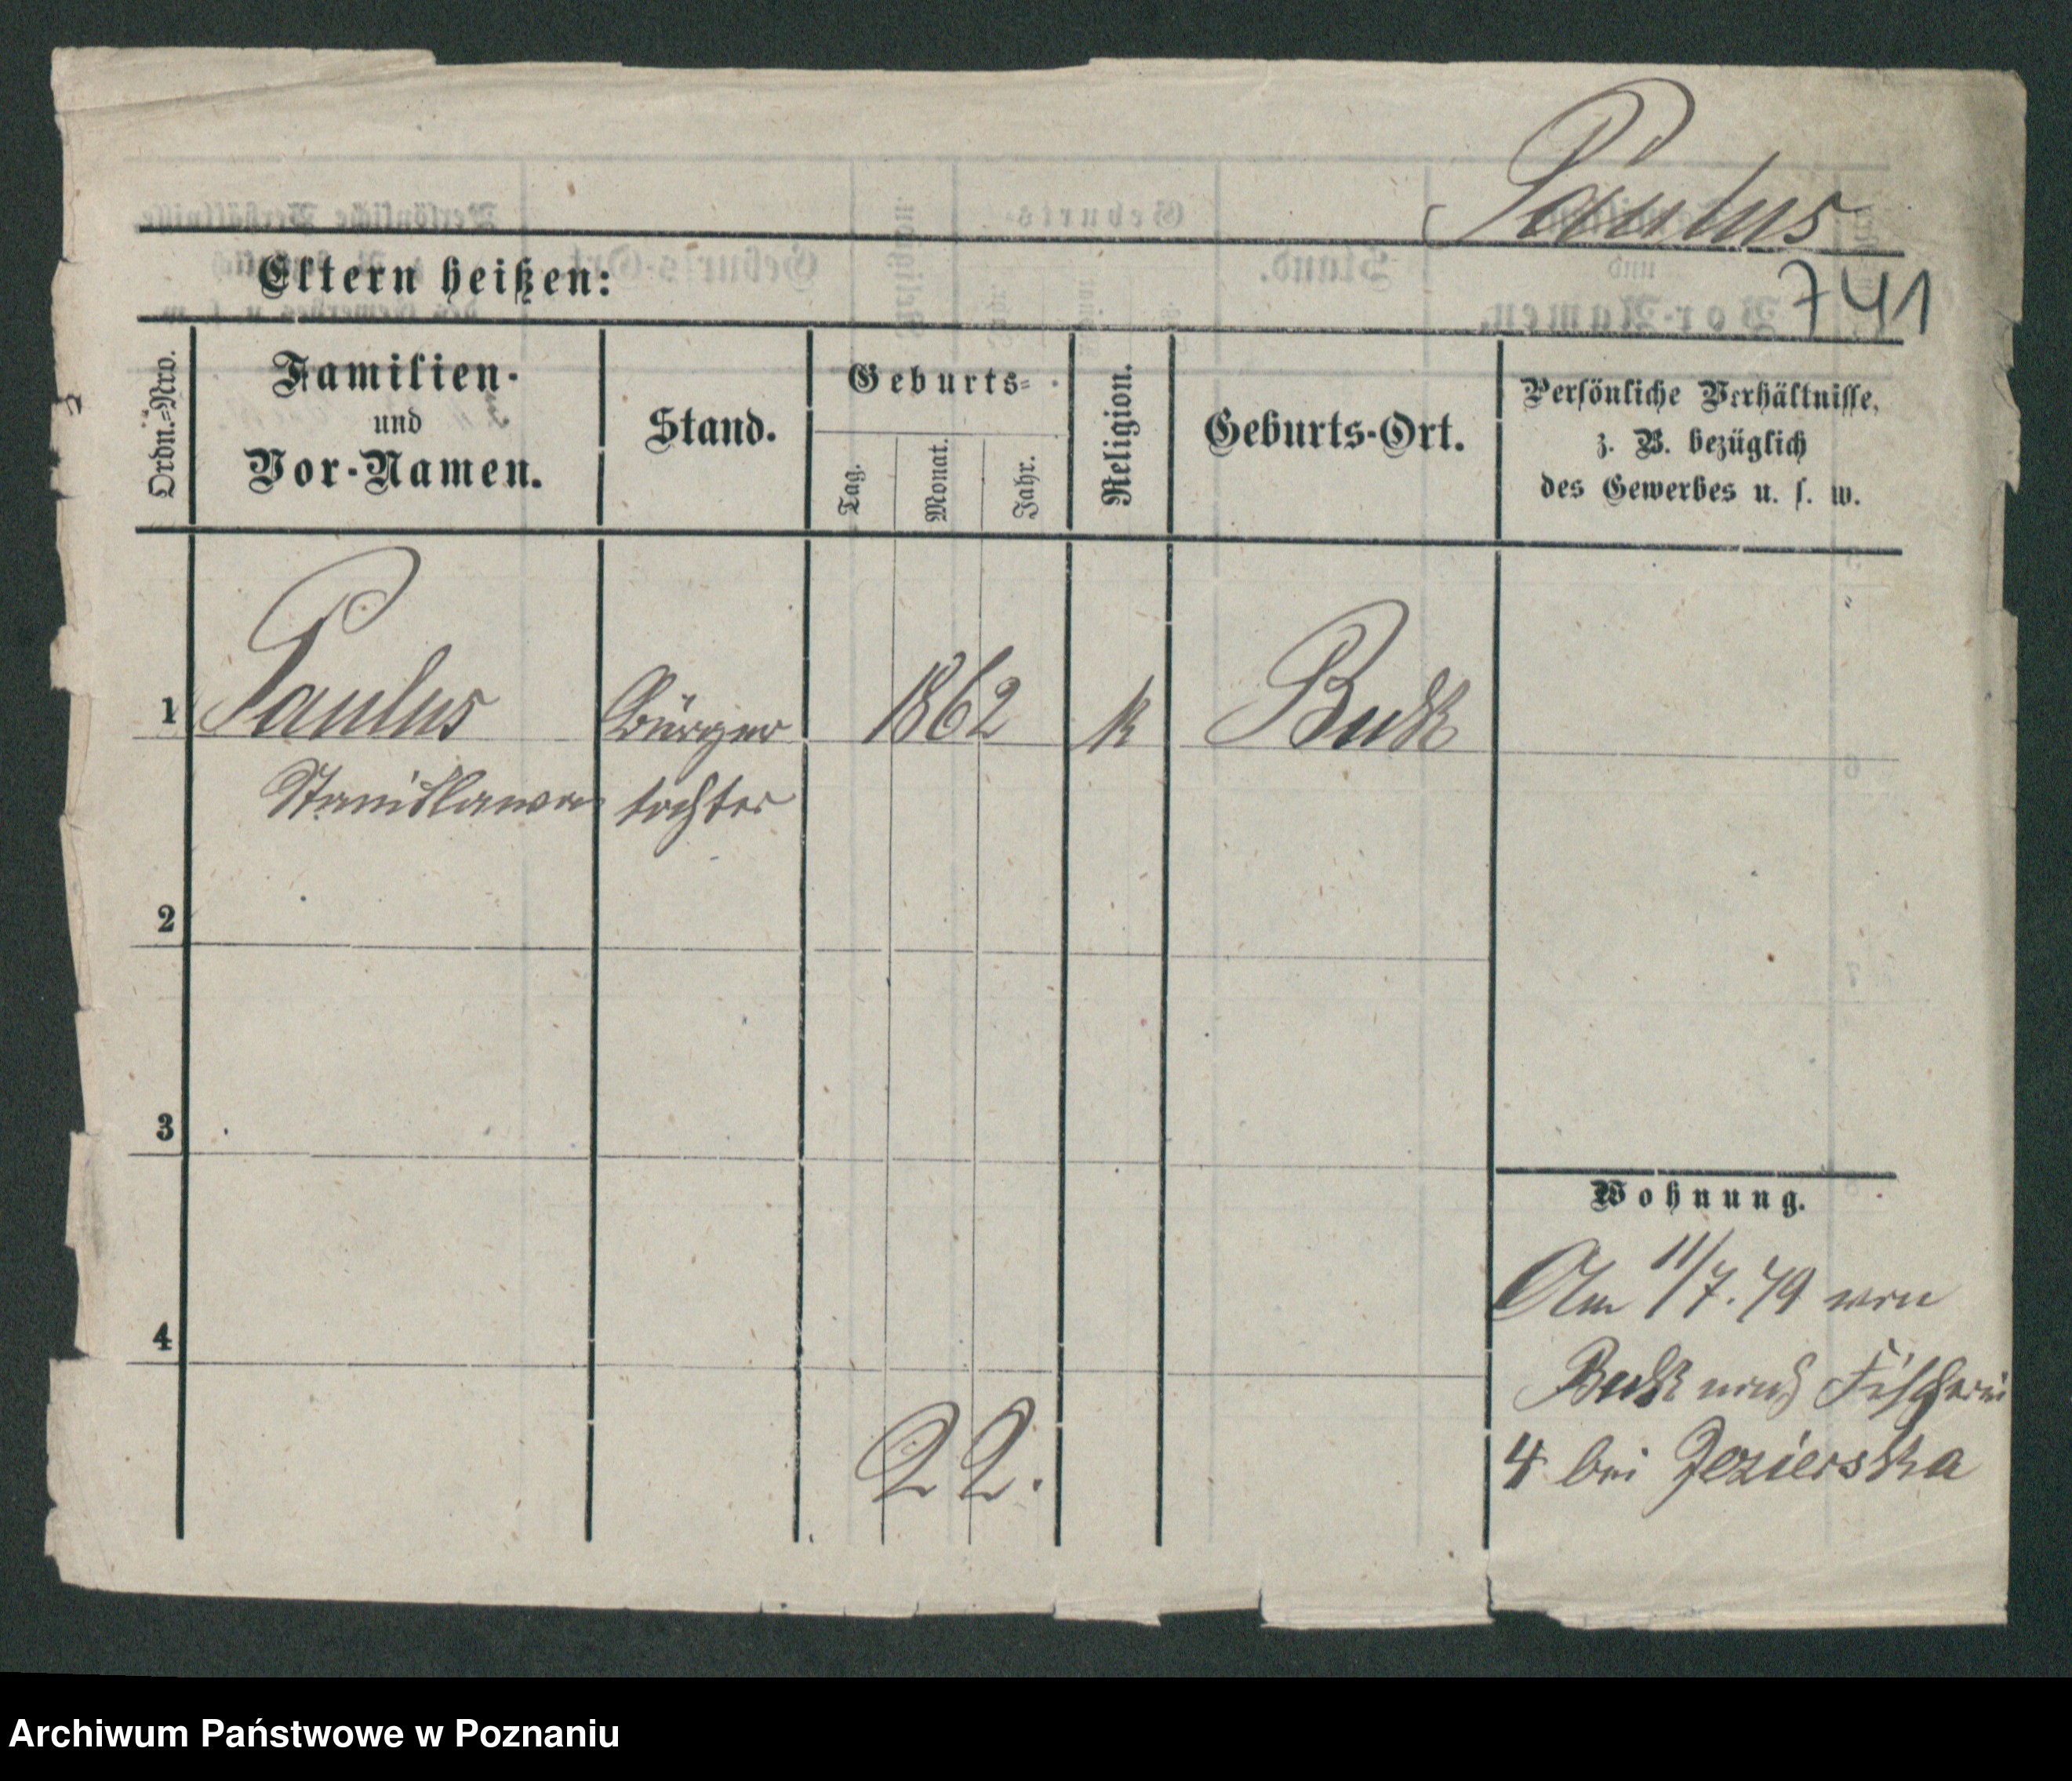 Paulus
741
Eltern heißen:
Ordn.-Nro.
Familien-
und
Vor-Namen.
Stand.
Geburts-
Tag.
Monat.
Jahr.
Religion.
Geburts-Ort.
Persönliche Verhältnisse,
z. B. bezüglich
des Gewerbes u. s. w.
1 Paulus Bürger 1862 k Buk
Stanislawa tochter
2
3
4
Wohnung.
Am 11/7. 79 von
Buk nach Fischerei
4 bei Jezierska
22.
Archiwum Państwowe w Poznaniu